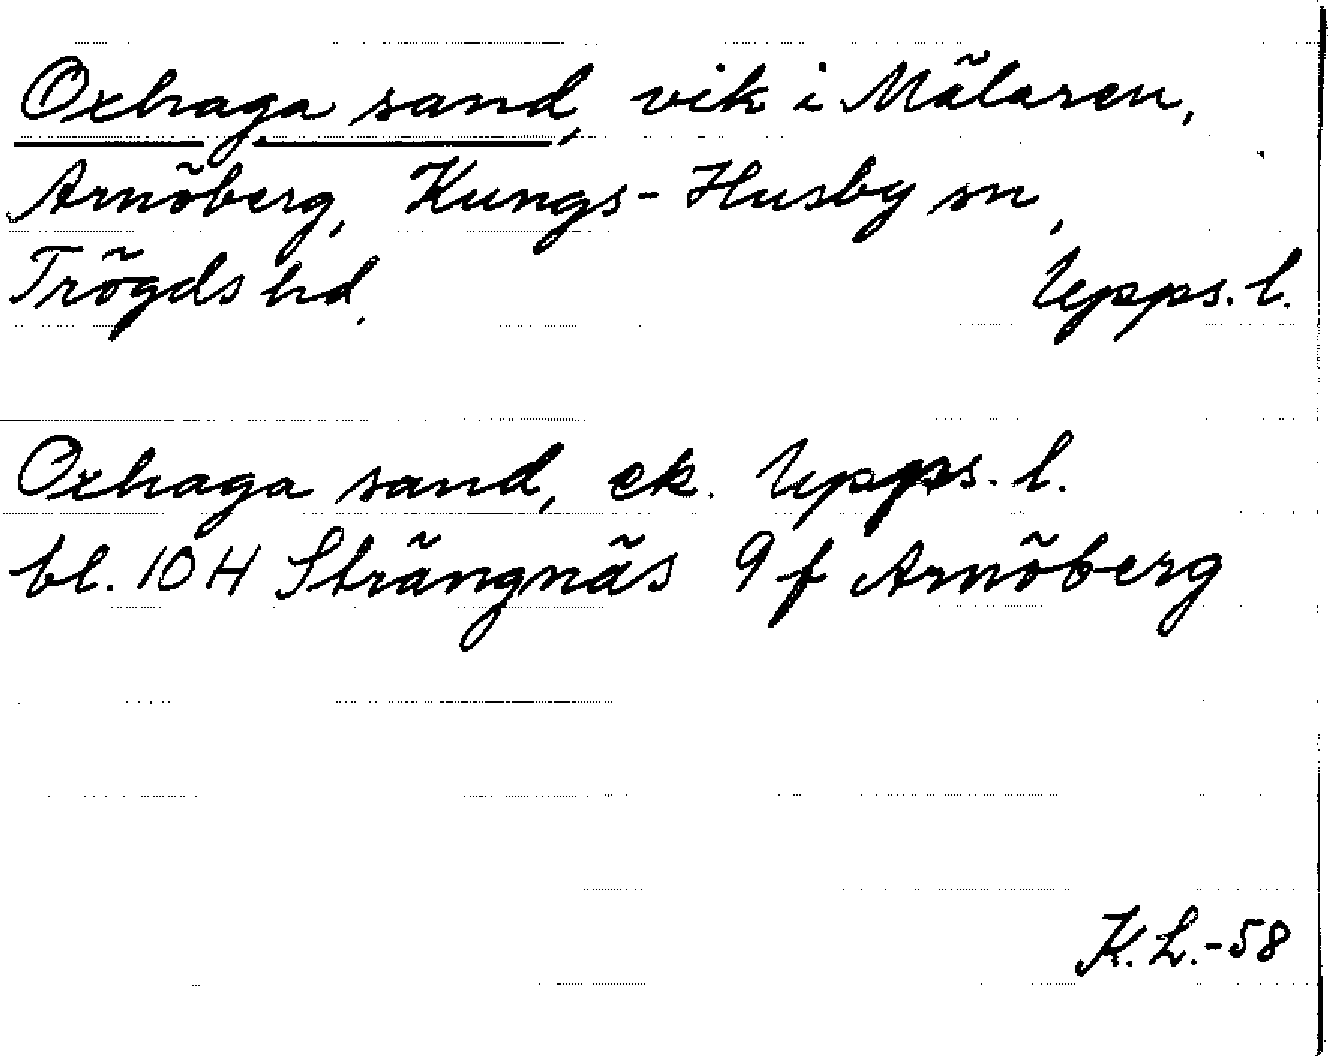 Oxhaga sand, vik i Mälaren,
Arnöberg, Kungs-Husby sn,
Trögds hd, Upps. l.
Oxhaga sand, ek. Upps. l.
bl. 10 H Strängnäs 9 f Arnöberg
K. L. -58